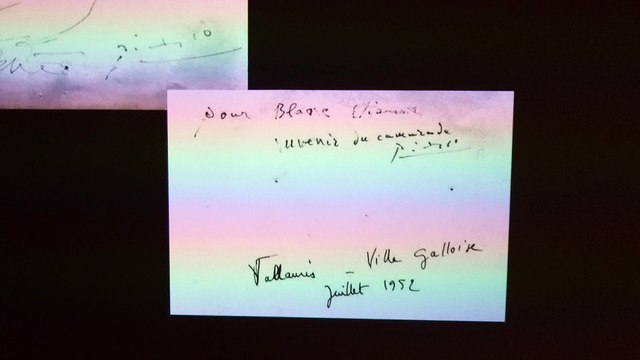 Picasso
pour Blaise
souvenir du camarade
Picasso
Vallauris – Villa Galloise
Juillet 1952